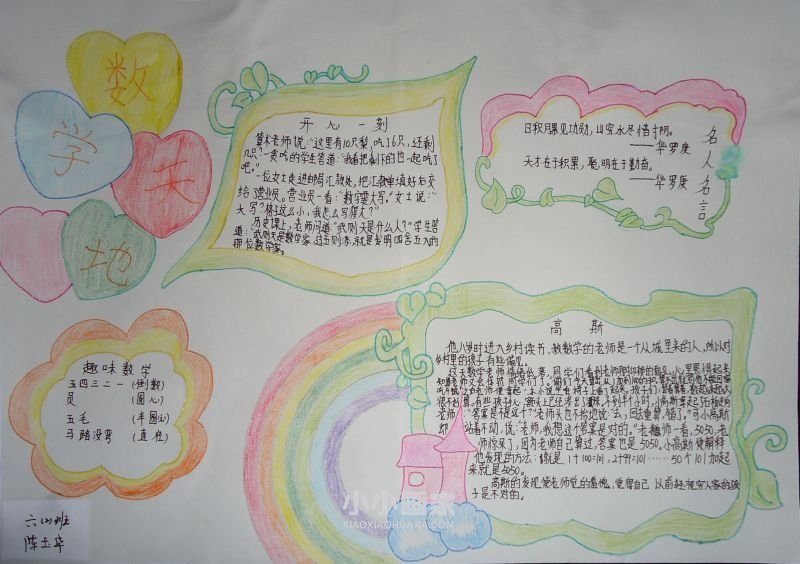 数
学
天
地
开心一刻
算术老师说:“这里有10只梨,吃了6只,还剩
几只?”一贪吃的学生答道:“我看把剩下的也一起吃了
吧。”
一位女士走进邮局汇款处,把汇款单填好后交
给营业员。营业员一看:“数字要大写。”女士说:“
大写?格子这么小,我怎么写得大?”
历史课上,老师问道“武则天是什么人?”学生答
道:武则天是数学家
就是发明四舍五入的
那位数学家。
日积月累见功勋,山穷水尽惜寸阴。
——华罗庚
天才在于积累,聪明在于勤奋。
——华罗庚
名人名言
趣味数学
五四三二一 (倒数)
员 (圆心)
五毛 (半圆)
马路没弯 (直径)
高斯
他八岁时进入乡村读书,教数学的老师是一个从城里来的人,所以对
乡村里的孩子有些偏见。
这天数学老师
同学们看到老师
“答案是不是这个?”老师头也不抬地说:“去,回去重算,错了。”可小高斯
却站着不动,说:“老师,我想这个答案是对的。”老师一看,5050,老
师惊呆了,因为老师自己算过,答案也是5050。小高斯便解释
他发现的方法:就是 1+100=101,2+99=101……50个101加起
来就是5050。
高斯的发现使老师觉的羞愧,觉得自己以前轻视穷人家的孩
子是不对的。
六(2)班
陈玉华
小小画家
XIAOXIAOHUAJIA.COM